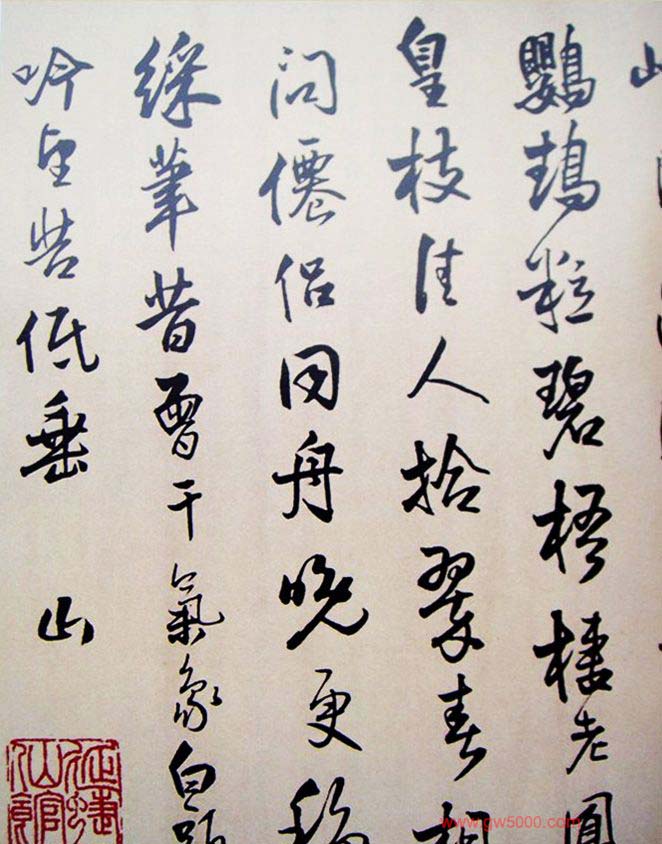 山
鸚鵡粒碧梧棲老鳳
皇枝佳人拾翠春相
問僊侶同舟晚更移
綵筆昔曾干氣象白頭
吟望苦低垂
山
www.gw5000.com